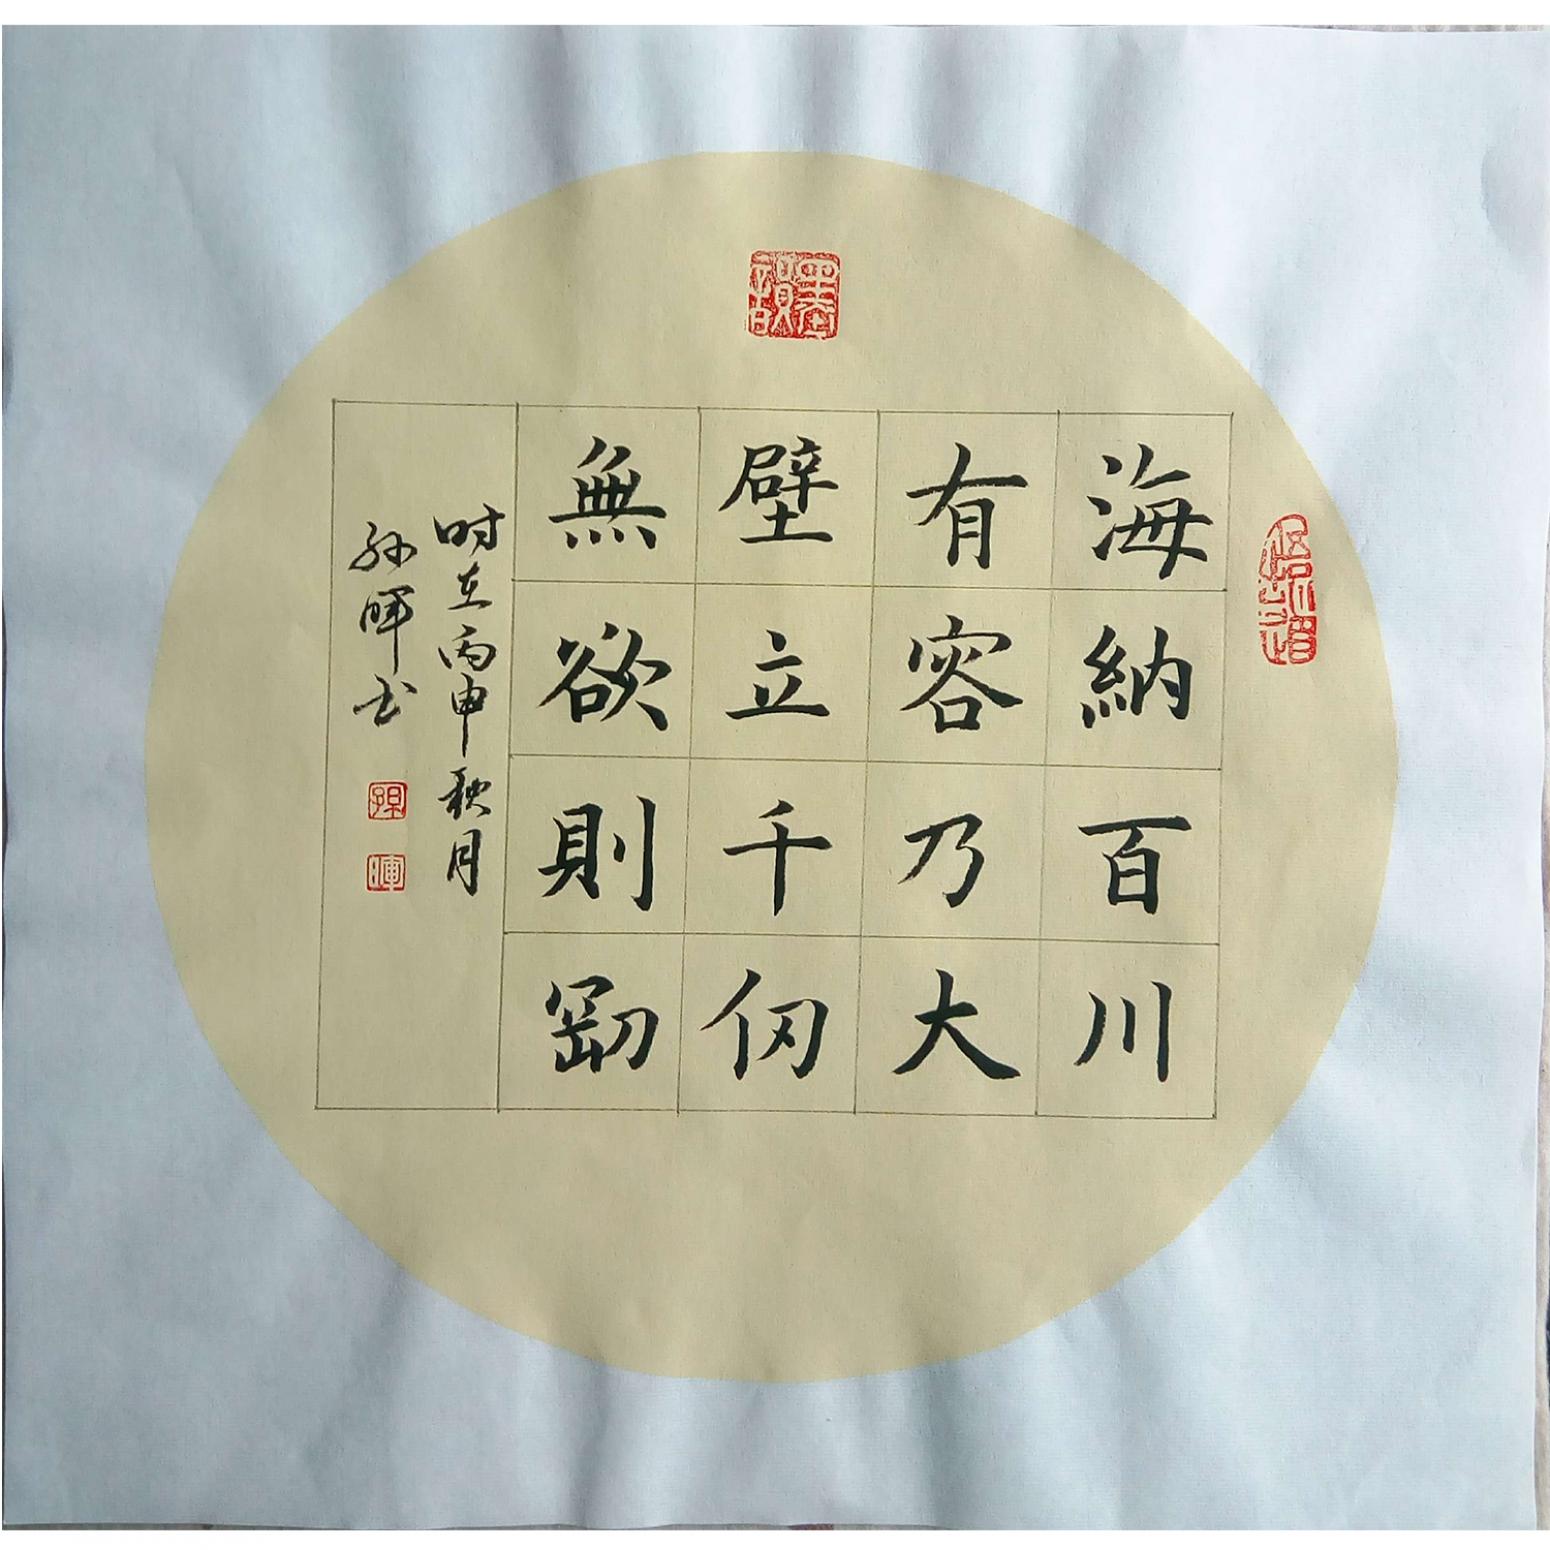 墨韻
悟道
海納百川
有容乃大
壁立千仞
無欲則剛
时在丙申秋月
孙晖书
孫
暉